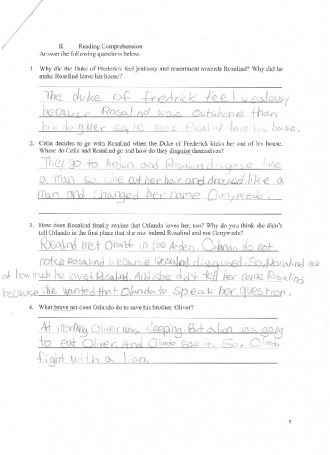 II. Reading Comprehension
Answer the following questions below.
1. Why did the Duke of Frederick feel jealousy and resentment towards Rosalind? Why did he
make Rosalind leave his house?
The duke of fredrick feel jealousy
because Rosalind was outshone than
his daughter so, he make Rosalind leave his house.
2. Celia decides to go with Rosalind when the Duke of Frederick kicks her out of his house.
Where do Celia and Rosalind go and how do they disguise themselves?
They go to Arden and Rosalind disguise like
a man so she cut her hair and dressed like a
man and changed her name Ganymede.
3. How does Rosalind finally realize that Orlando loves her, too? Why do you think she didn't
tell Orlando in the first place that she was indeed Rosalind and not Ganymede?
Rosalind met Orlando in the Arden. Orlando do not
notice Rosalind because Rosalind disguised. So, Rosalind ask
at how much he loved Rosalind. And she didn't tell her name Rosalind
because she wanted that Olando to speak her question.
4. What brave act does Orlando do to save his brother, Oliver?
At morning Oliver was sleeping. But a lion was going
to eat Oliver. And Olando saw it. So, Olando
fight with a lion.